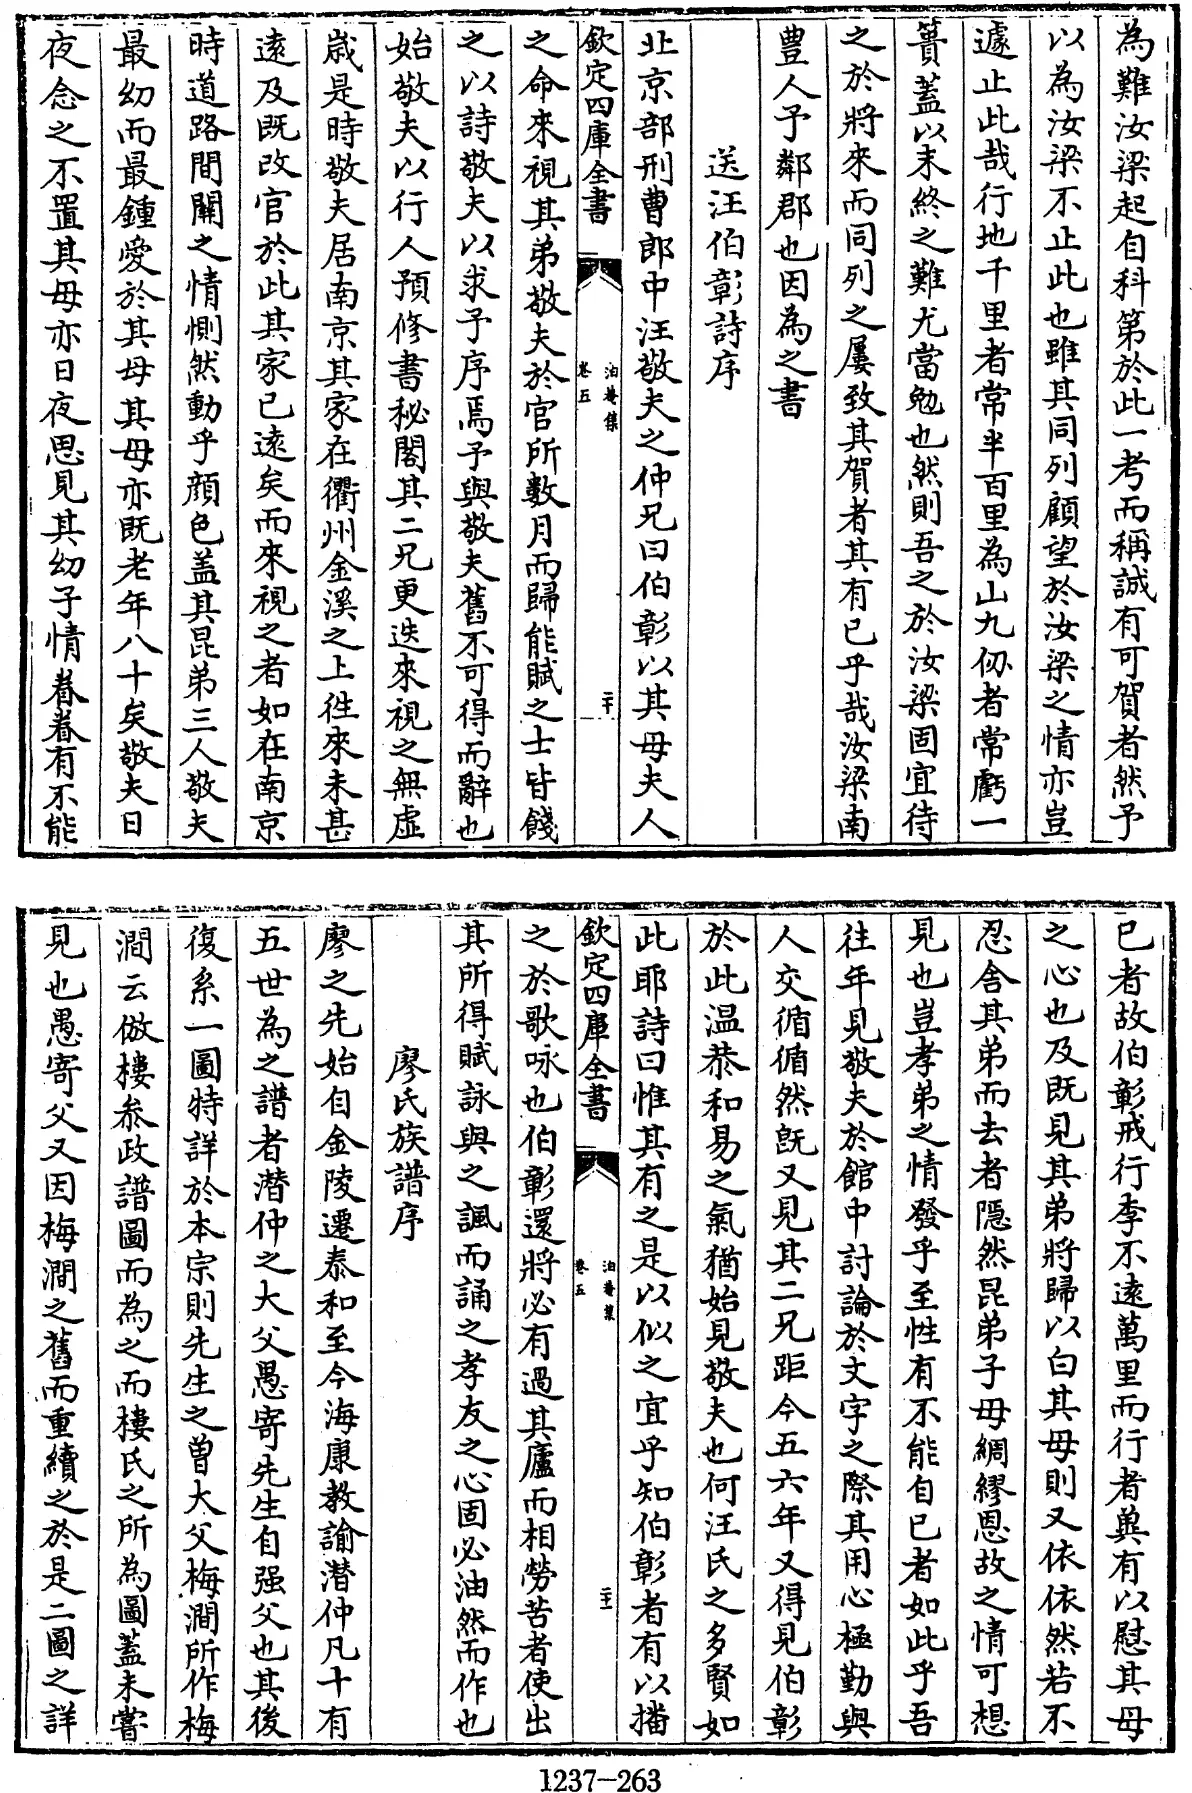 為難汝梁起自科第於此一考而稱誠有可賀者然予
以為汝梁不止此也雖其同列顧望於汝梁之情亦豈
遽止此哉行地千里者常半百里為山九仞者常虧一
簣蓋以末終之難尤當勉也然則吾之於汝梁固宜待
之於將來而同列之屢致其賀者其有已乎哉汝梁南
豊人予鄰郡也因為之書
送汪伯彰詩序
北京部刑曹郎中汪敬夫之仲兄曰伯彰以其母夫人
欽定四庫全書
泊菴集
卷五
二十
之命來視其弟敬夫於官所數月而歸能賦之士皆餞
之以詩敬夫以求予序焉予與敬夫舊不可得而辭也
始敬夫以行人預修書秘閣其二兄更迭來視之無虛
歲是時敬夫居南京其家在衢州金溪之上徃來未甚
遠及既改官於此其家已遠矣而來視之者如在南京
時道路間關之情惻然動乎顔色盖其昆弟三人敬夫
最幼而最鍾愛於其母其母亦既老年八十矣敬夫日
夜念之不置其母亦日夜思見其幼子情眷眷有不能
已者故伯彰戒行李不遠萬里而行者兾有以慰其母
之心也及既見其弟將歸以白其母則又依依然若不
忍舍其弟而去者隠然昆弟子母綢繆恩故之情可想
見也豈孝弟之情發乎至性有不能自已者如此乎吾
往年見敬夫於館中討論於文字之際其用心極勤與
人交循循然既又見其二兄距今五六年又得見伯彰
於此温恭和易之氣猶始見敬夫也何汪氏之多賢如
此耶詩曰惟其有之是以似之宜乎知伯彰者有以播
欽定四庫全書
泊菴集
卷五
二十一
之於歌咏也伯彰還將必有過其廬而相勞苦者使出
其所得賦詠與之諷而誦之孝友之心固必油然而作也
廖氏族譜序
廖之先始自金陵遷泰和至今海康教諭潜仲凡十有
五世為之譜者潜仲之大父愚寄先生自强父也其後
復系一圖特詳於本宗則先生之曽大父梅澗所作梅
澗云倣樓叅政譜圖而為之而樓氏之所為圖蓋未嘗
見也愚寄父又因梅澗之舊而重續之於是二圖之詳
1237-263